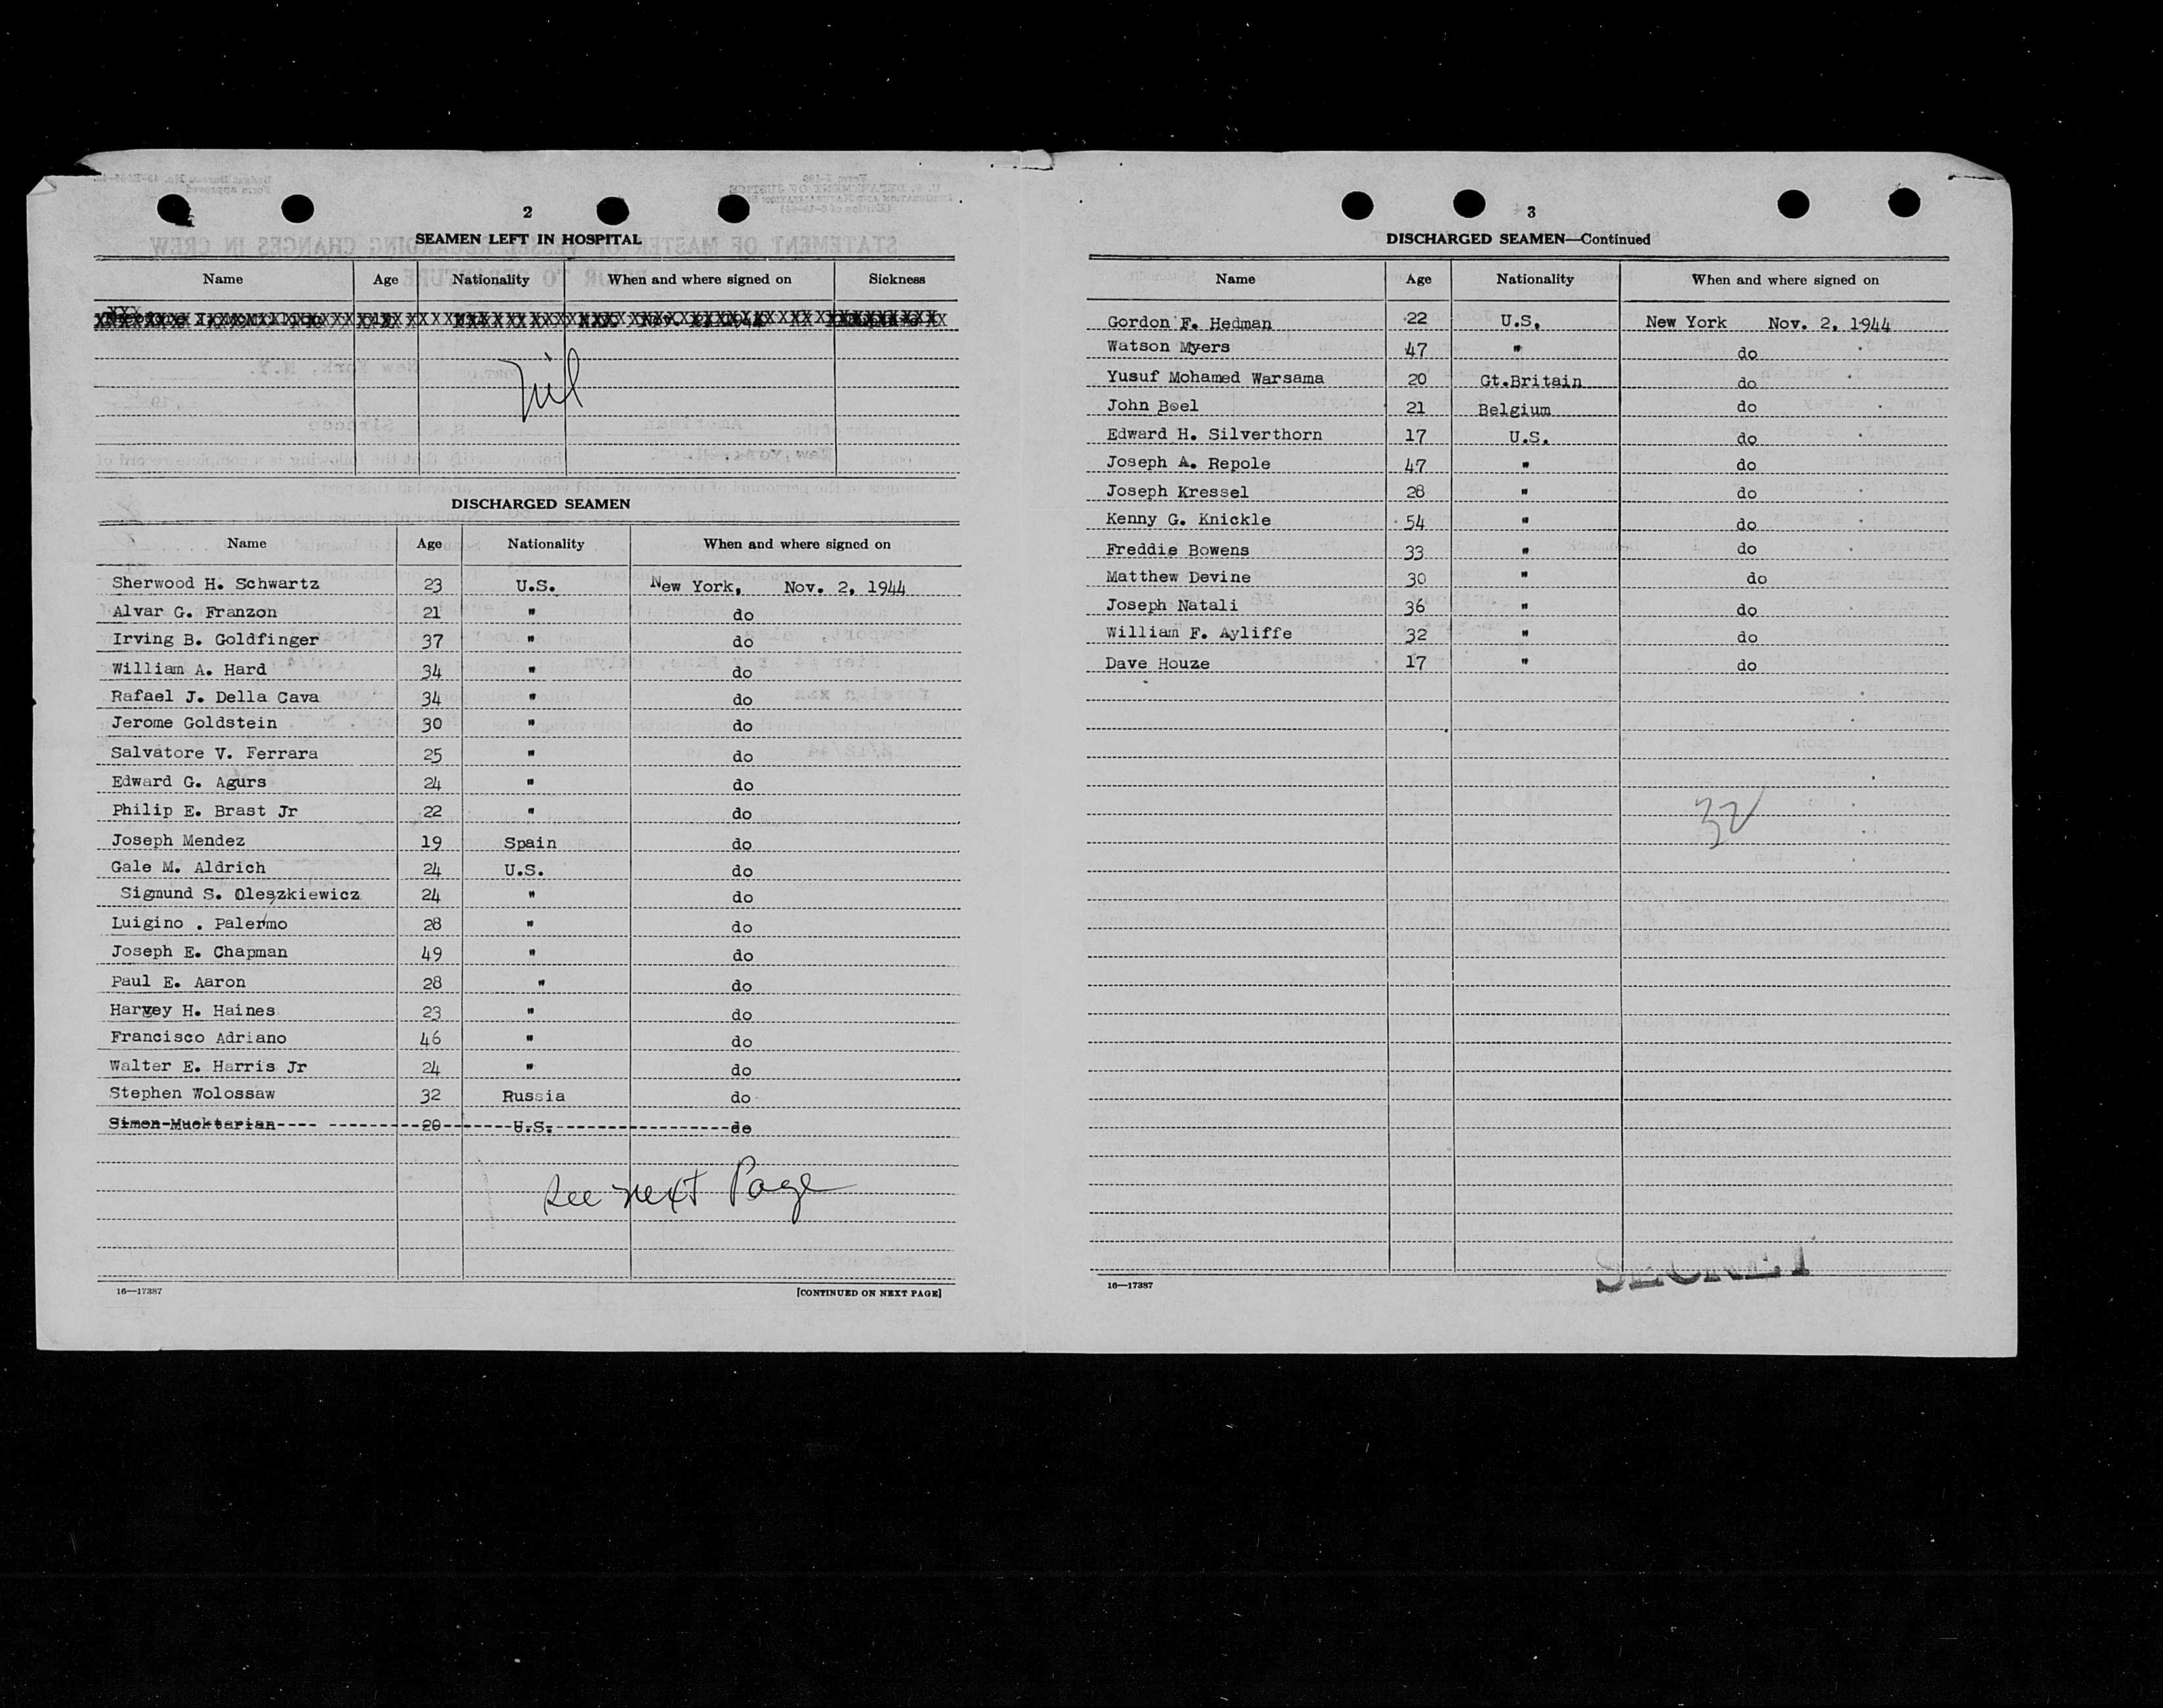 2
SEAMEN LEFT IN HOSPITAL
Name Age Nationality When and where signed on Sickness
Nil
DISCHARGED SEAMEN
Name Age Nationality When and where signed on
Sherwood H. Schwartz 23 U.S. New York, Nov. 2, 1944
Alvar G. Franzon 21 " do
Irving B. Goldfinger 37 " do
William A. Hard 34 " do
Rafael J. Della Cava 34 " do
Jerome Goldstein 30 " do
Salvatore V. Ferrara 25 " do
Edward G. Agurs 24 " do
Philip E. Brast Jr 22 " do
Joseph Mendez 19 Spain do
Gale M. Aldrich 24 U.S. do
Sigmund S. Oleszkiewicz 24 " do
Luigino . Palermo 28 " do
Joseph E. Chapman 49 " do
Paul E. Aaron 28 " do
Harvey H. Haines 23 " do
Francisco Adriano 46 " do
Walter E. Harris Jr 24 " do
Stephen Wolossaw 32 Russia do
Simon Mucktarian 20 U.S. do
See next Page
16—17387
[CONTINUED ON NEXT PAGE]
3
DISCHARGED SEAMEN—Continued
Name Age Nationality When and where signed on
Gordon F. Hedman 22 U.S. New York Nov. 2, 1944
Watson Myers 47 " do
Yusuf Mohamed Warsama 20 Gt.Britain do
John Boel 21 Belgium do
Edward H. Silverthorn 17 U.S. do
Joseph A. Repole 47 " do
Joseph Kressel 28 " do
Kenny G. Knickle 54 " do
Freddie Bowens 33 " do
Matthew Devine 30 " do
Joseph Natali 36 " do
William F. Ayliffe 32 " do
Dave Houze 17 " do
32
16—17387
SECRET